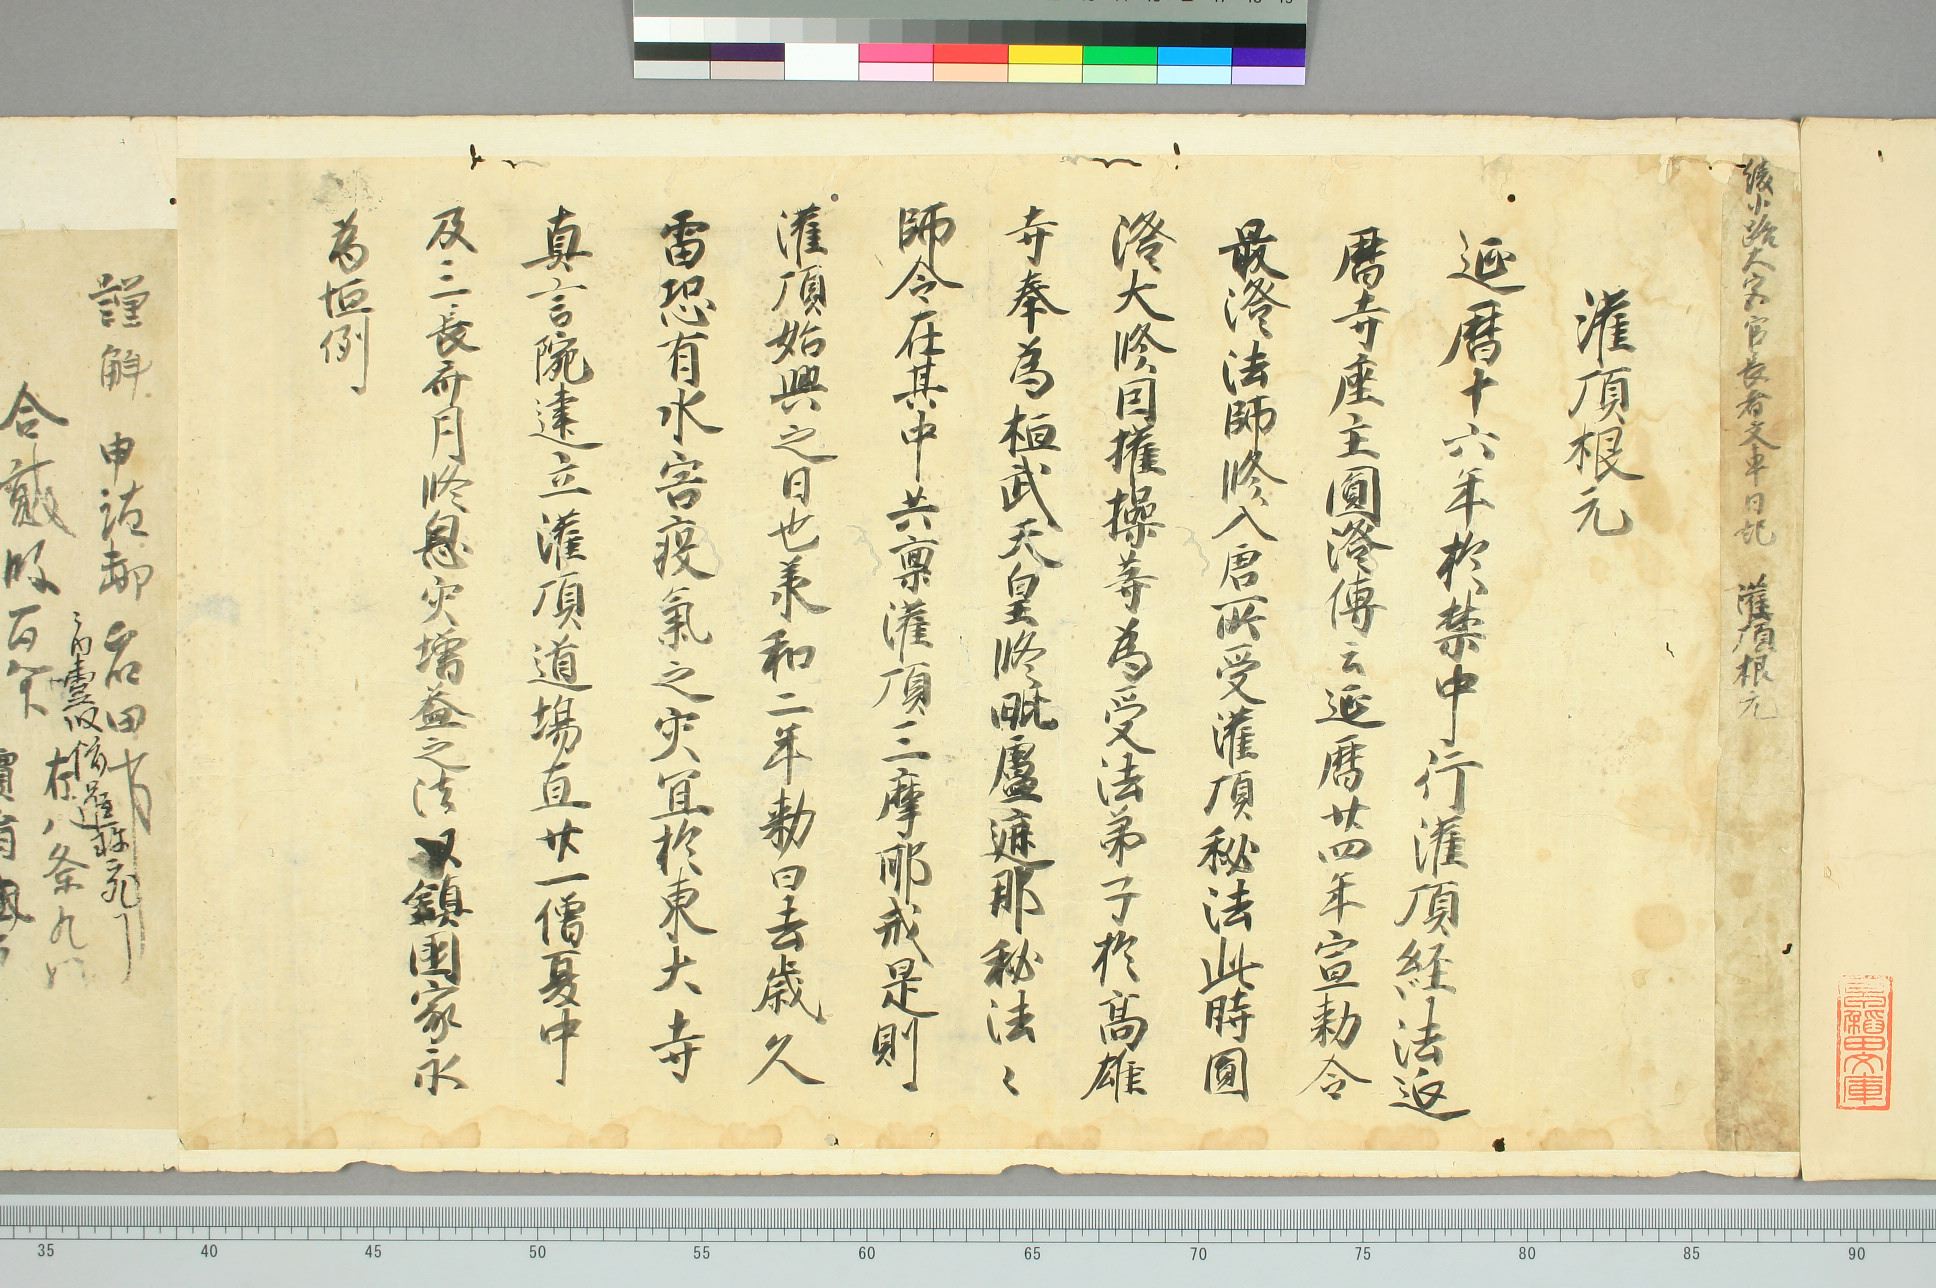 綾小路大宮官長者文車日記 灌頂根元
灌頂根元
延暦十六年於禁中行灌頂経法延
暦寺座主圓澄傳云延暦廿四年宣勅令
最澄法師修入唐所受灌頂秘法此時圓
澄大修因擢操等為受法弟子於高雄
寺奉為桓武天皇修毗盧遮那秘法〻
師令在其中共稟灌頂三摩耶戒是則
灌頂始興之日也承和二年勅曰去歳久
雷恐有水害疫氣之灾宜於東大寺
真言院建立灌頂道場直廿一僧夏中
及三長斎月修息灾増益之法以鎮国家永
為恒例
謹解 申沽却 田
在八条九
合 段百
35 40 45 50 55 60 65 70 75 80 85 90